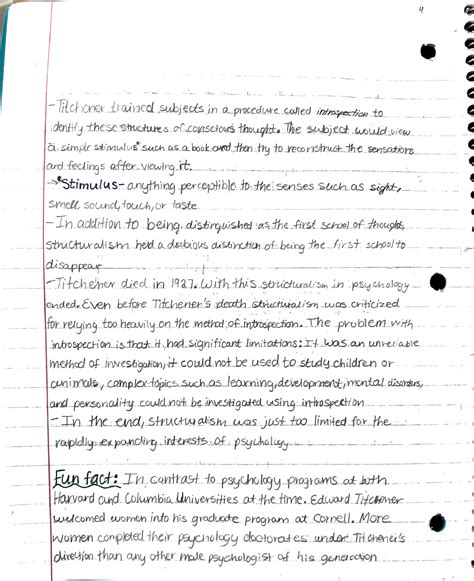 4
-Titchener trained subjects in a procedure called introspection to
identify these structures of conscious thought. The subject would view
a simple stimulus* such as a book and then try to reconstruct the sensations
and feelings after viewing it.
→*Stimulus- anything perceptible to the senses such as sight,
smell, sound, touch, or taste
-In addition to being distinguished as the first school of thought,
structuralism held a dubious distinction of being the first school to
disappear
-Titchener died in 1927. With this structuralism in psychology
ended. Even before Titchener's death structuralism was criticized
for relying too heavily on the method of introspection. The problem with
introspection is that it had significant limitations: It was an unreliable
method of investigation, it could not be used to study children or
animals, complex topics such as learning, development, mental disorders,
and personality could not be investigated using introspection
-In the end, structuralism was just too limited for the
rapidly expanding interests of psychology.
Fun fact: In contrast to psychology programs at both
Harvard and Columbia Universities at the time. Edward Titchener
welcomed women into his graduate program at Cornell. More
women completed their psychology doctorates under Titchener's
direction than any other male psychologist of his generation